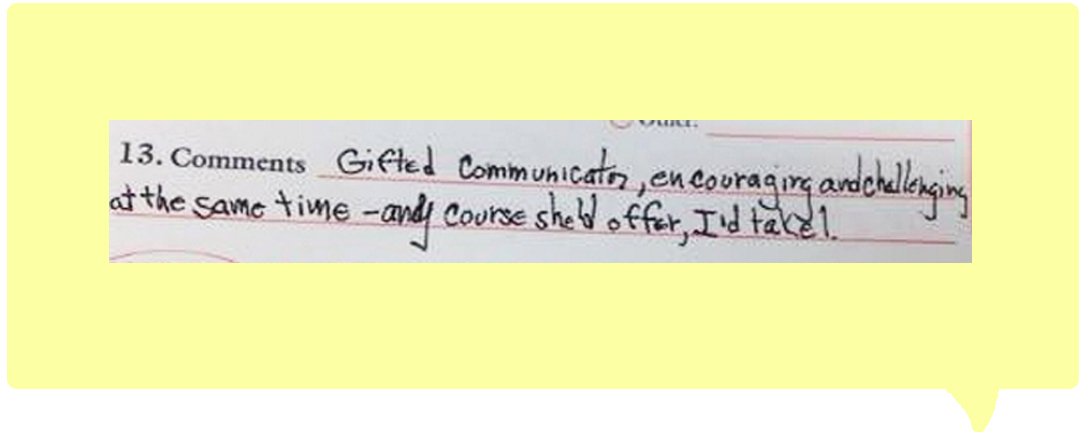 13. Comments Gifted Communicator, encouraging and challenging
at the same time - andy course she'd offer, I'd take!